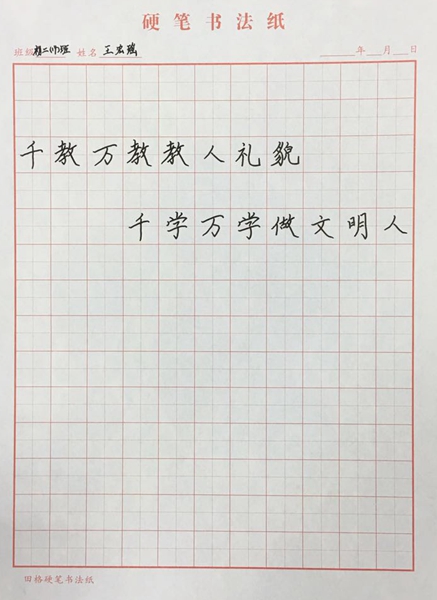 硬笔书法纸
班级 初二(7)班 姓名 王宏瑶 年 月 日
千教万教教人礼貌
千学万学做文明人
田格硬笔书法纸